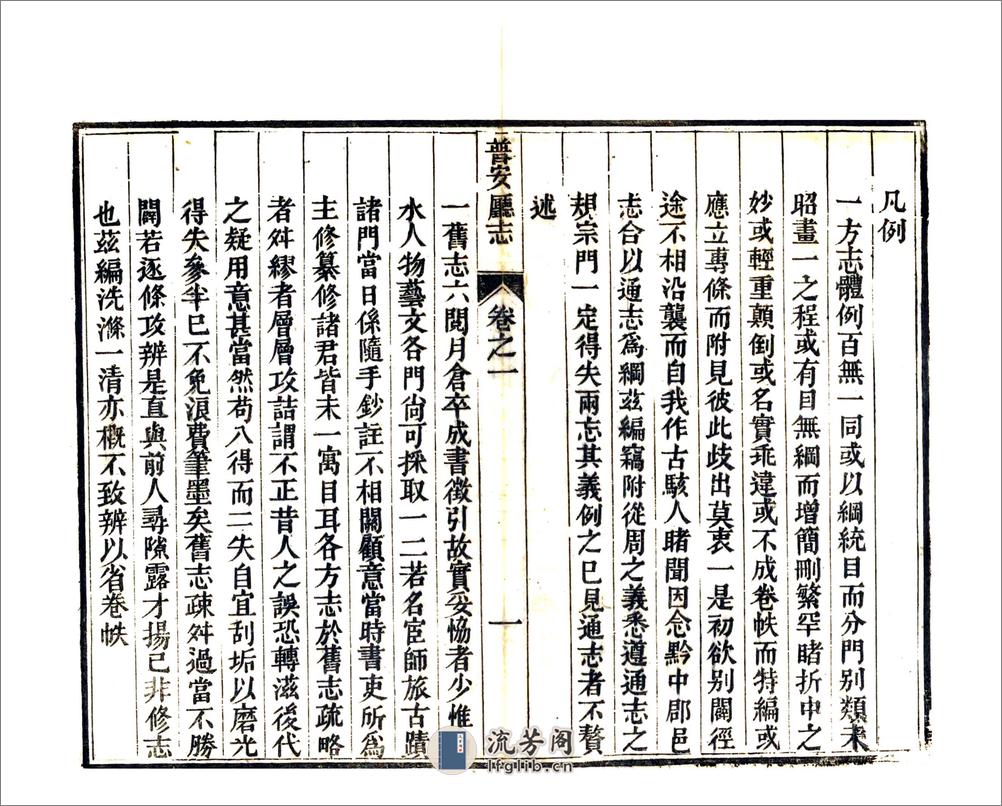 凡例
一方志體例百無一同或以綱統目而分門別類未
昭畫一之程或有目無綱而增簡刪繁罕睹折中之
妙或輕重顛倒或名實乖違或不成卷帙而特編或
應立專條而附見彼此歧出莫衷一是初欲别闢徑
途不相沿襲而自我作古駭人睹聞因念黔中郡邑
志合以通志爲綱茲編竊附從周之義悉遵通志之
規宗門一定得失兩忘其義例之已見通志者不贅
述
普安廳志 卷之一 一
一舊志六閱月倉卒成書徵引故實妥恊者少惟山
水人物藝文各門尙可採取一二若名宦師旅古蹟
諸門當日係隨手鈔註不相關顧意當時書吏所爲
主修纂修諸君皆未一寓目耳各方志於舊志疏略
者舛繆者層層攻詰謂不正昔人之誤恐轉滋後代
之疑用意甚當然苟八得而二失自宜刮垢以磨光
得失參半已不免浪費筆墨矣舊志疎舛過當不勝
闢若逐條攻辨是直與前人尋隙露才揚己非修志
也茲編洗滌一清亦概不致辨以省卷帙
流芳阁
lfglib.cn